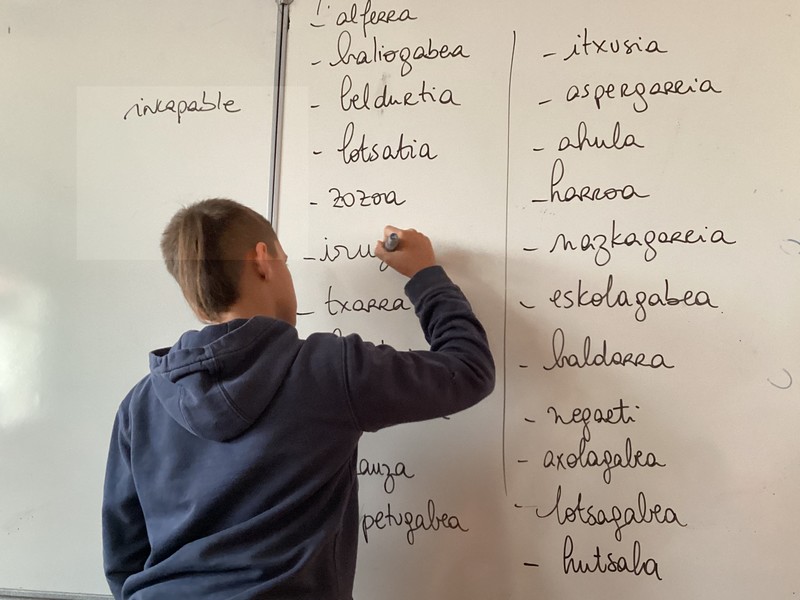 inkapable
- alferra
- baliogabea
- beldurtia
- lotsatia
- zozoa
- iruz
- txarra
auza
petugabea
- itxusia
- aspergarria
- ahula
- harroa
- nazkagarria
- eskolagabea
- baldarra
- negarti
- axolagabea
- lotsagabea
- hutsala